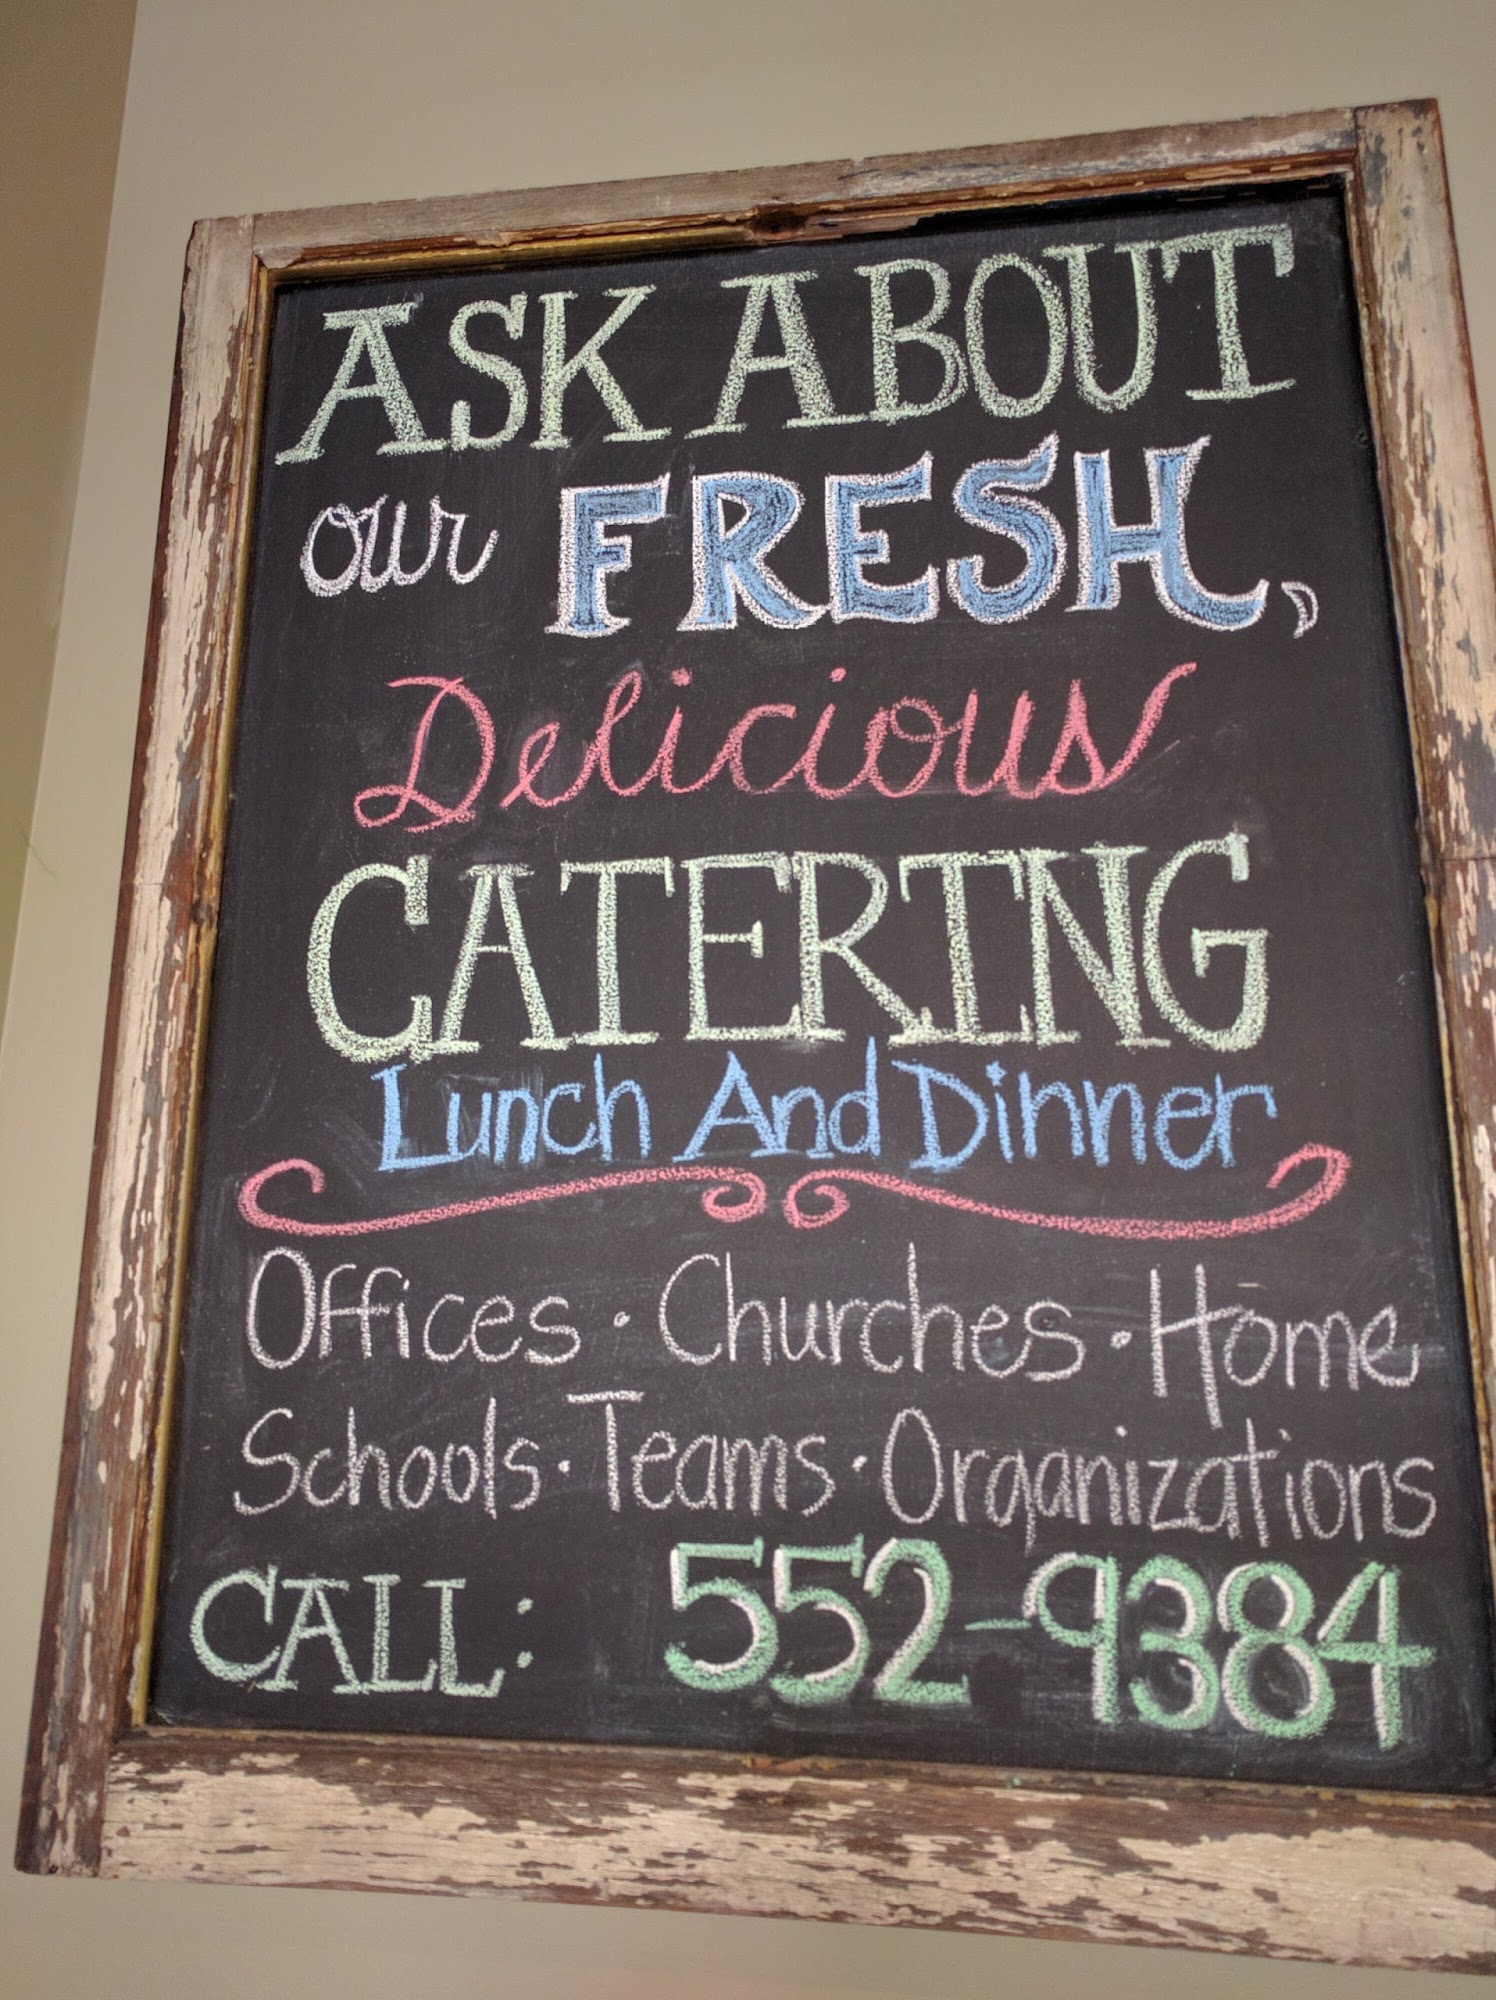 ASK ABOUT
our FRESH,
Delicious
CATERING
Lunch And Dinner
Offices · Churches · Home
Schools · Teams · Organizations
CALL: 552-9384